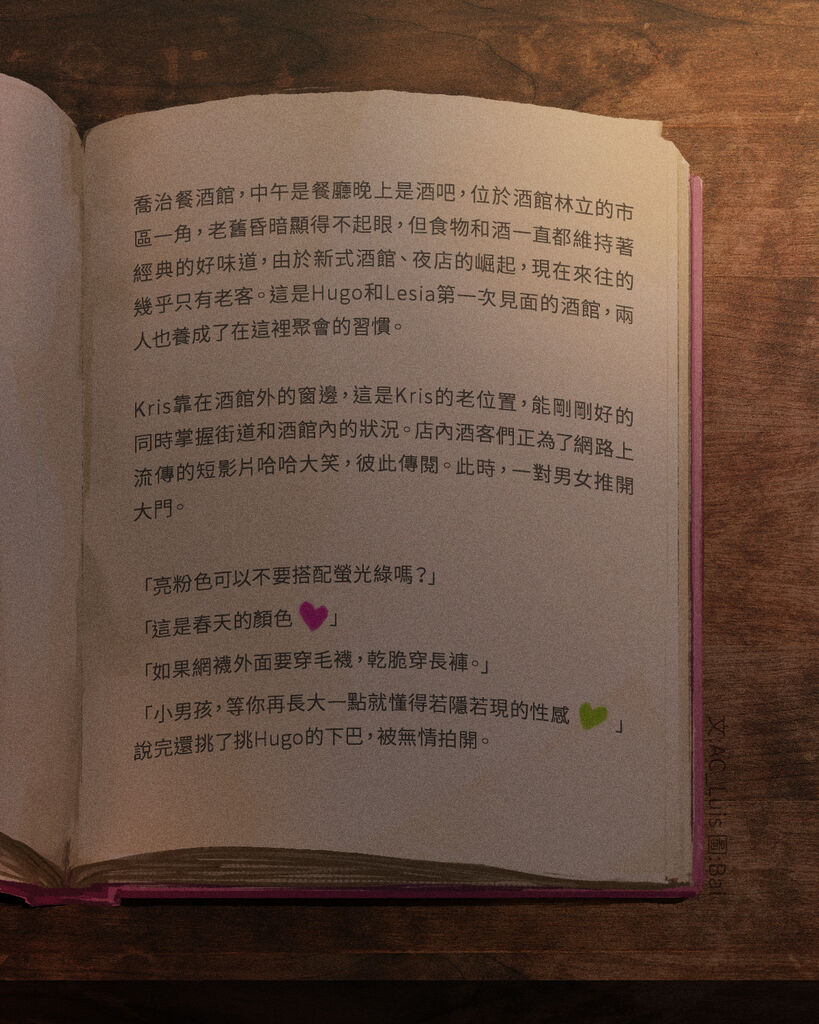 喬治餐酒館，中午是餐廳晚上是酒吧，位於酒館林立的市
區一角，老舊昏暗顯得不起眼，但食物和酒一直都維持著
經典的好味道，由於新式酒館、夜店的崛起，現在來往的
幾乎只有老客。這是Hugo和Lesia第一次見面的酒館，兩
人也養成了在這裡聚會的習慣。
Kris靠在酒館外的窗邊，這是Kris的老位置，能剛剛好的
同時掌握街道和酒館內的狀況。店內酒客們正為了網路上
流傳的短影片哈哈大笑，彼此傳閱。此時，一對男女推開
大門。
「亮粉色可以不要搭配螢光綠嗎？」
「這是春天的顏色 」
「如果網襪外面要穿毛襪，乾脆穿長褲。」
「小男孩，等你再長大一點就懂得若隱若現的性感 」
說完還挑了挑Hugo的下巴，被無情拍開。
文:AC_Luis 圖:Bai